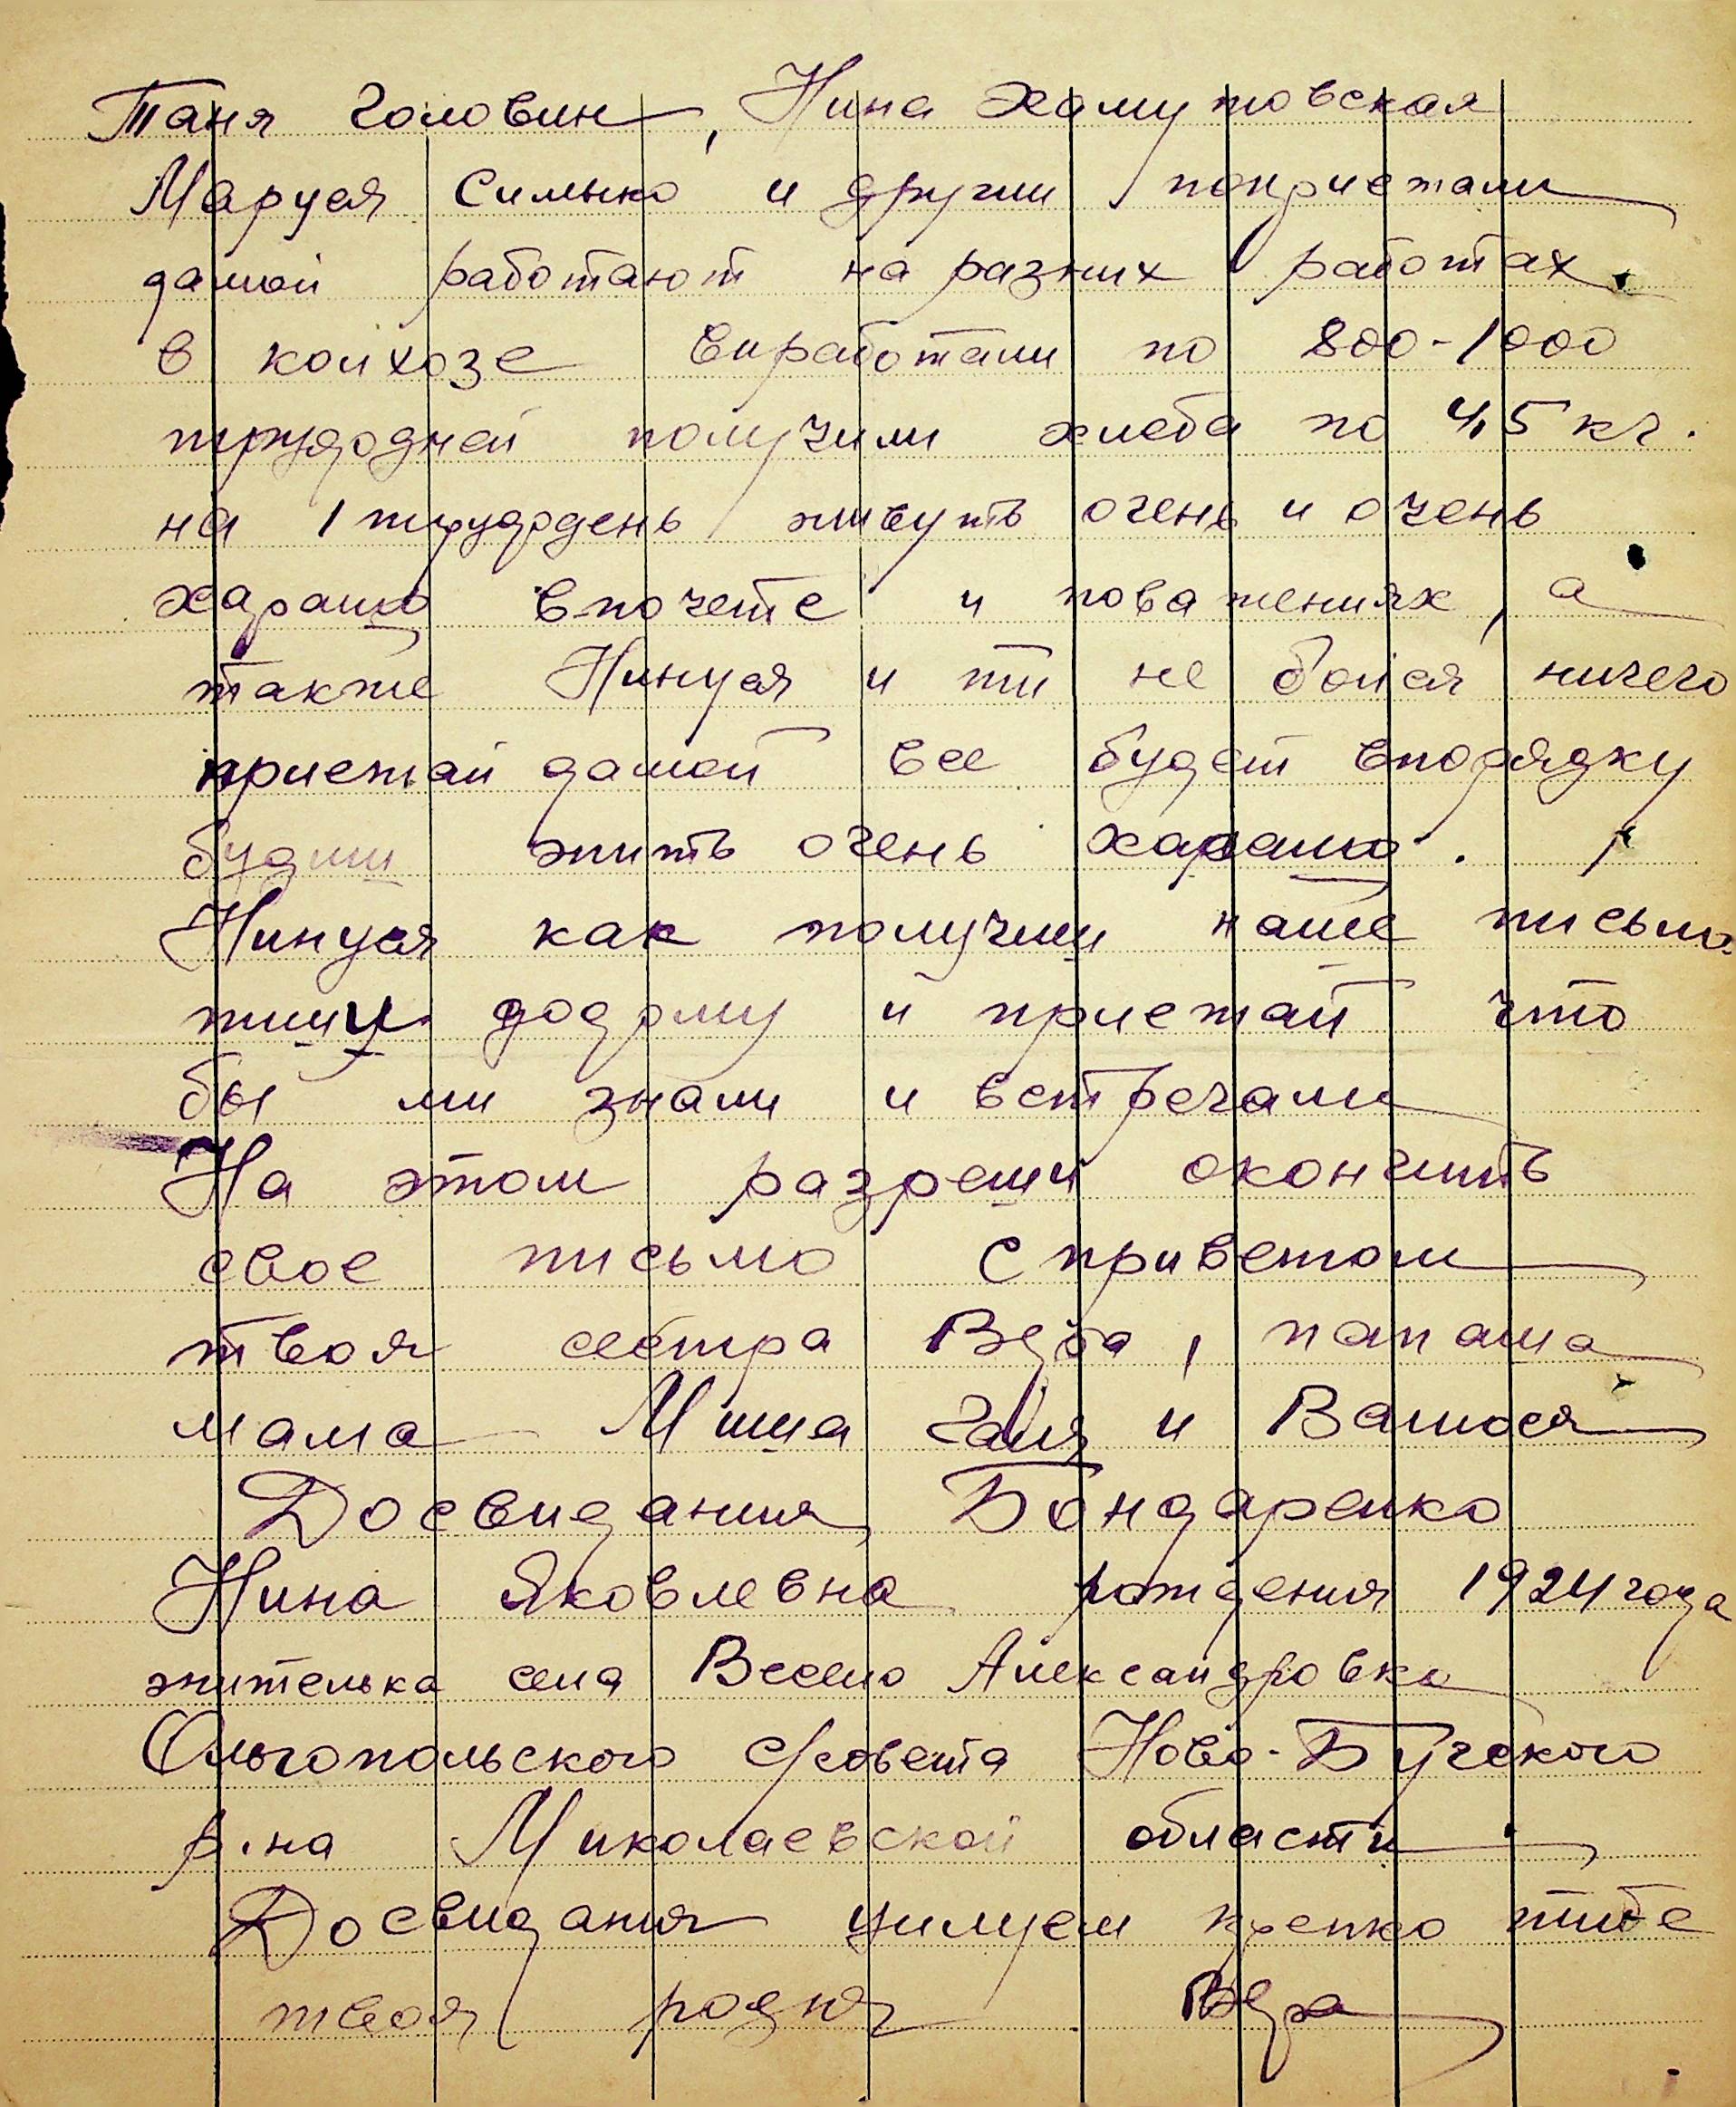 Таня Головин, Нина Хамутовская
Маруся Симынко и други поприетали
дамой работают на разних работах.
в колхозе виработали по 800-1000
трудодней получили хлеба по 4,5 кг.
на 1 трудодень живуть очень и очень
харашо впочете и поваженияx, а
также Нинуся и ти не бойся ничего
приежай дамой все будет впорядку
будиш жить очень харашо.
Нинуся как получиш наше письмо
пишу додому и приежай что
бы ми знали и встречали
На этом разреши окончить
свое письмо с приветом
твоя сестра Вера, папаша
мама Миша Галя и Вамося
Досвидания Бондаренко
Нина Яковлевна рождения 1924 года
жителька села Весело Александровка
Ольгопольского с/совета Ново-Бугского
р.на Миколаевской области
Досвидания цилуем крепко тибе
твоя родня Вера